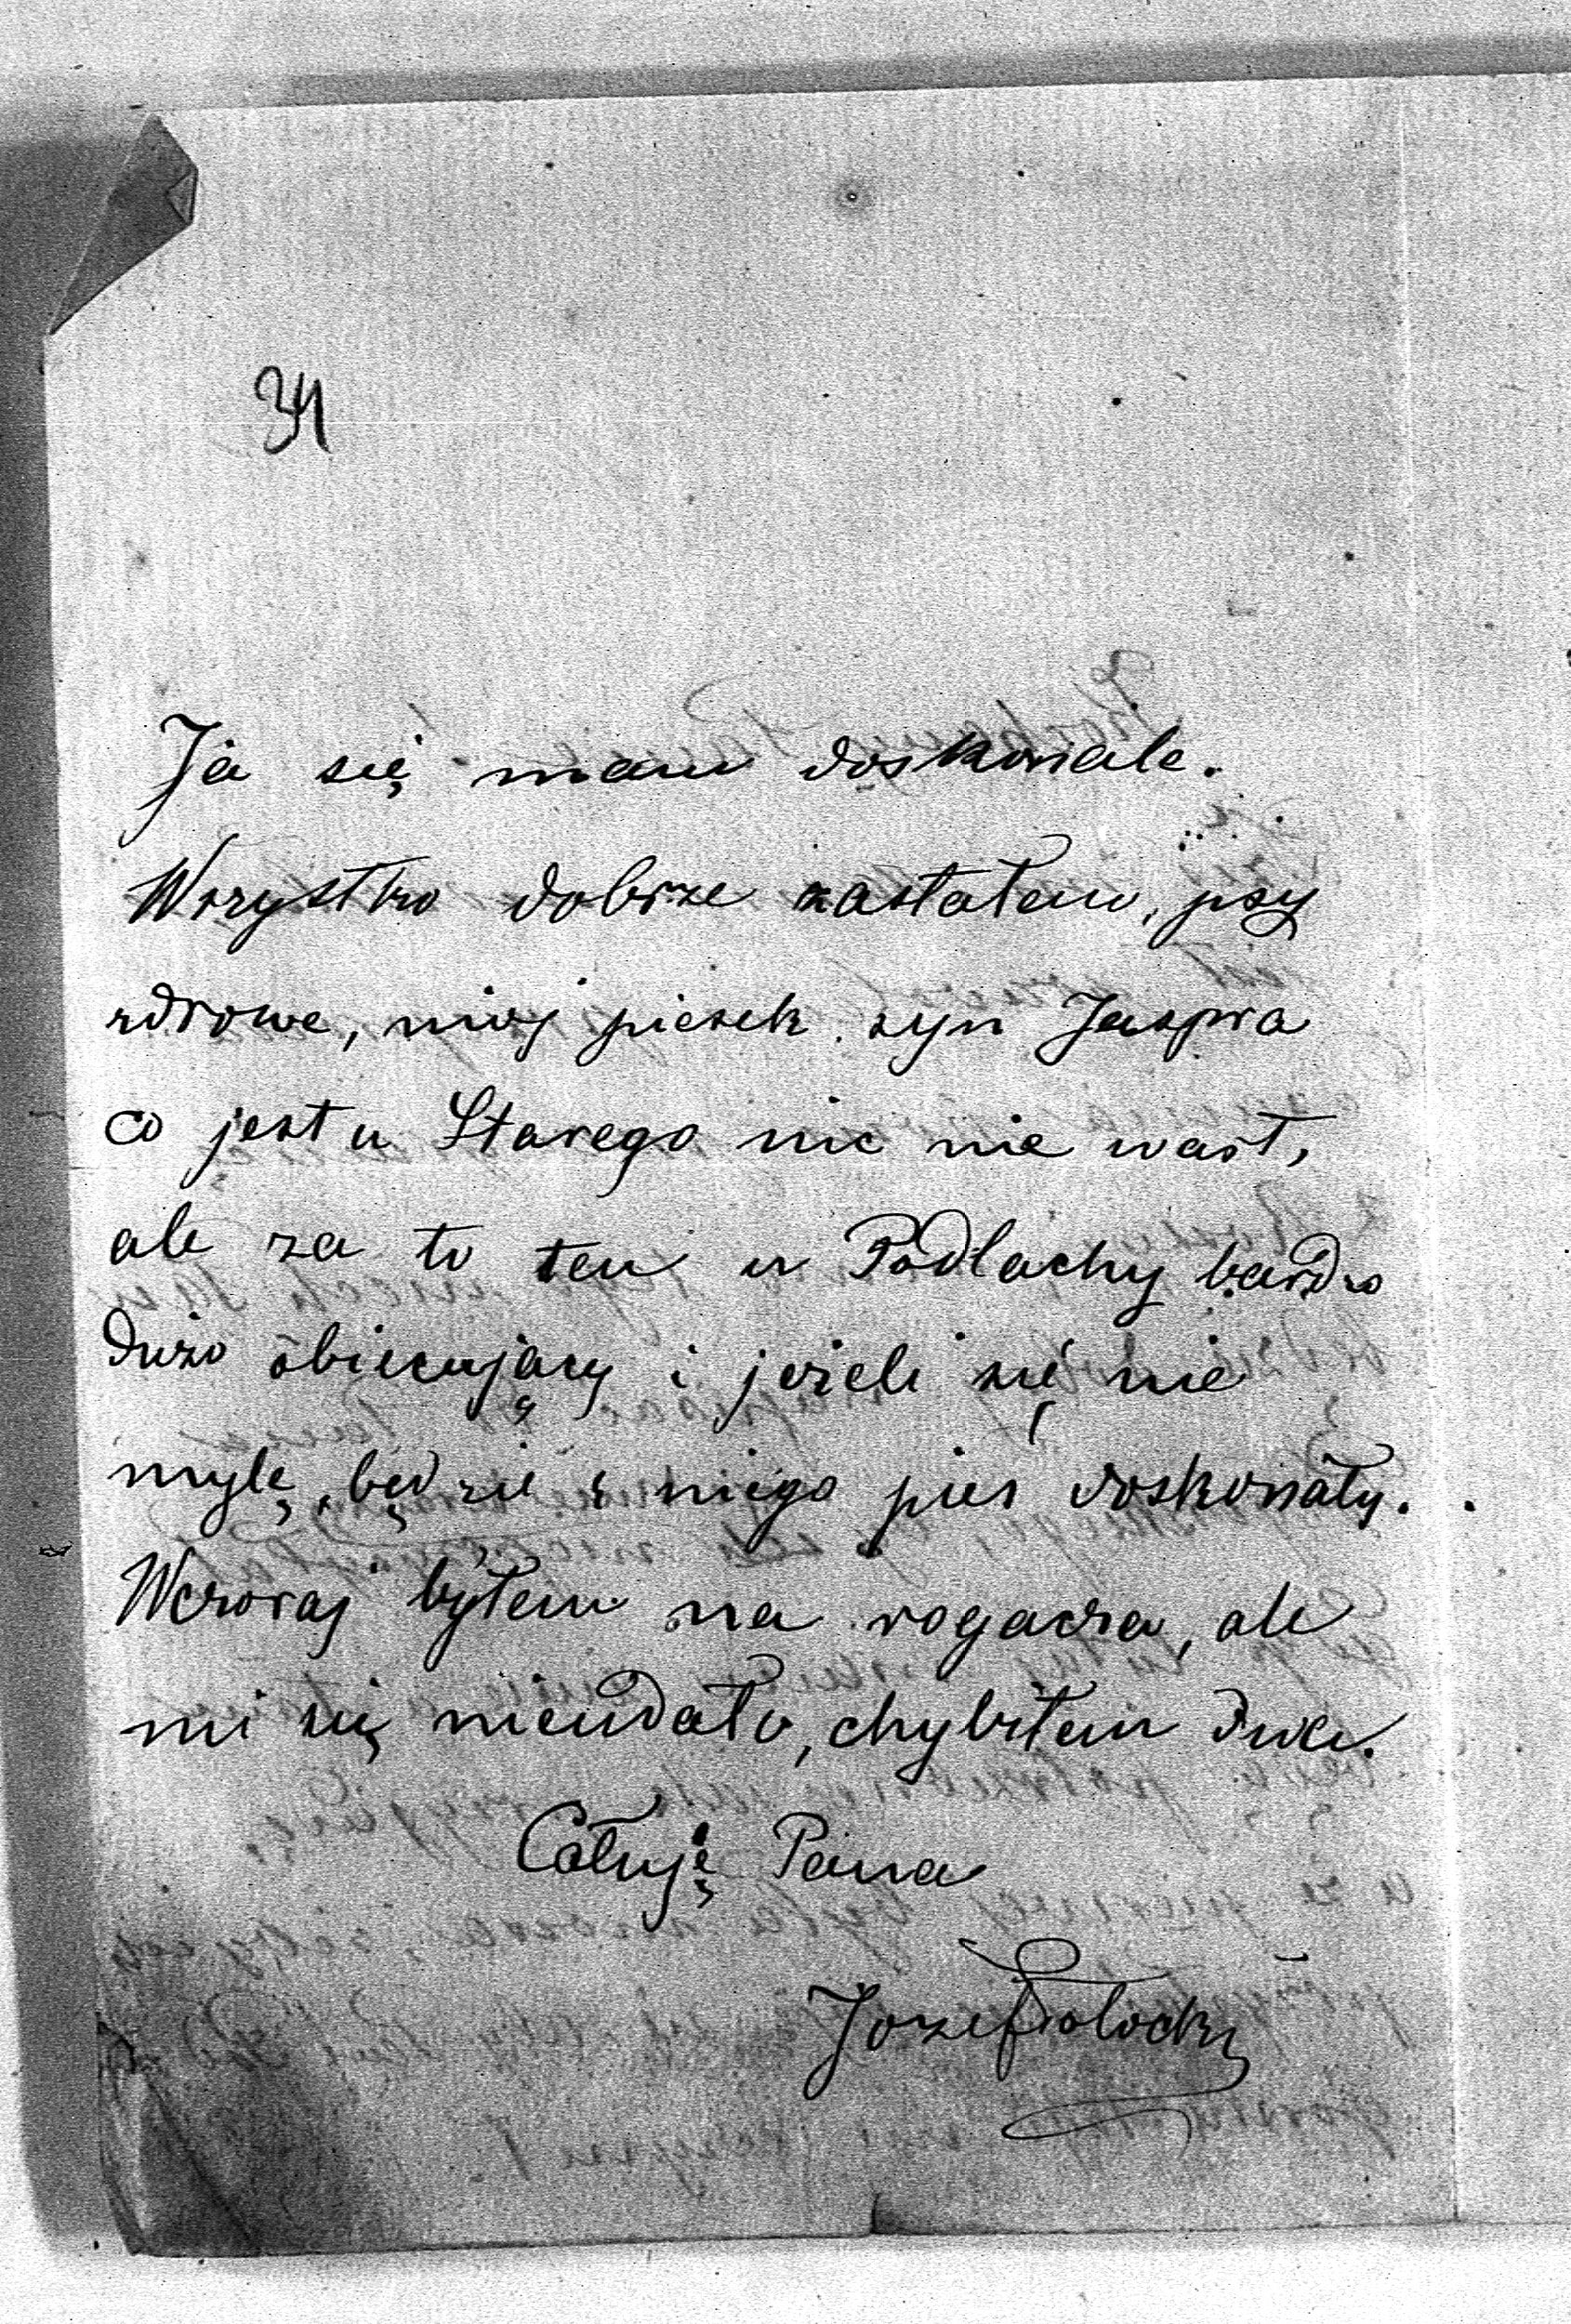 34
Ja się mam doskonale.
Wszystko dobrze zastałem, psy
zdrowe, mój piesek syn Jaspra
co jest u Starego nic nie wart,
ale za to ten u Podlachy bardzo
dużo obiecujący i jeżeli się nie
mylę, będzie z niego pies doskonały.
Wczoraj byłem na rogacza, ale
mi się nieudało, chybiłem dwa.
Całuję Pana
Józef Potocki